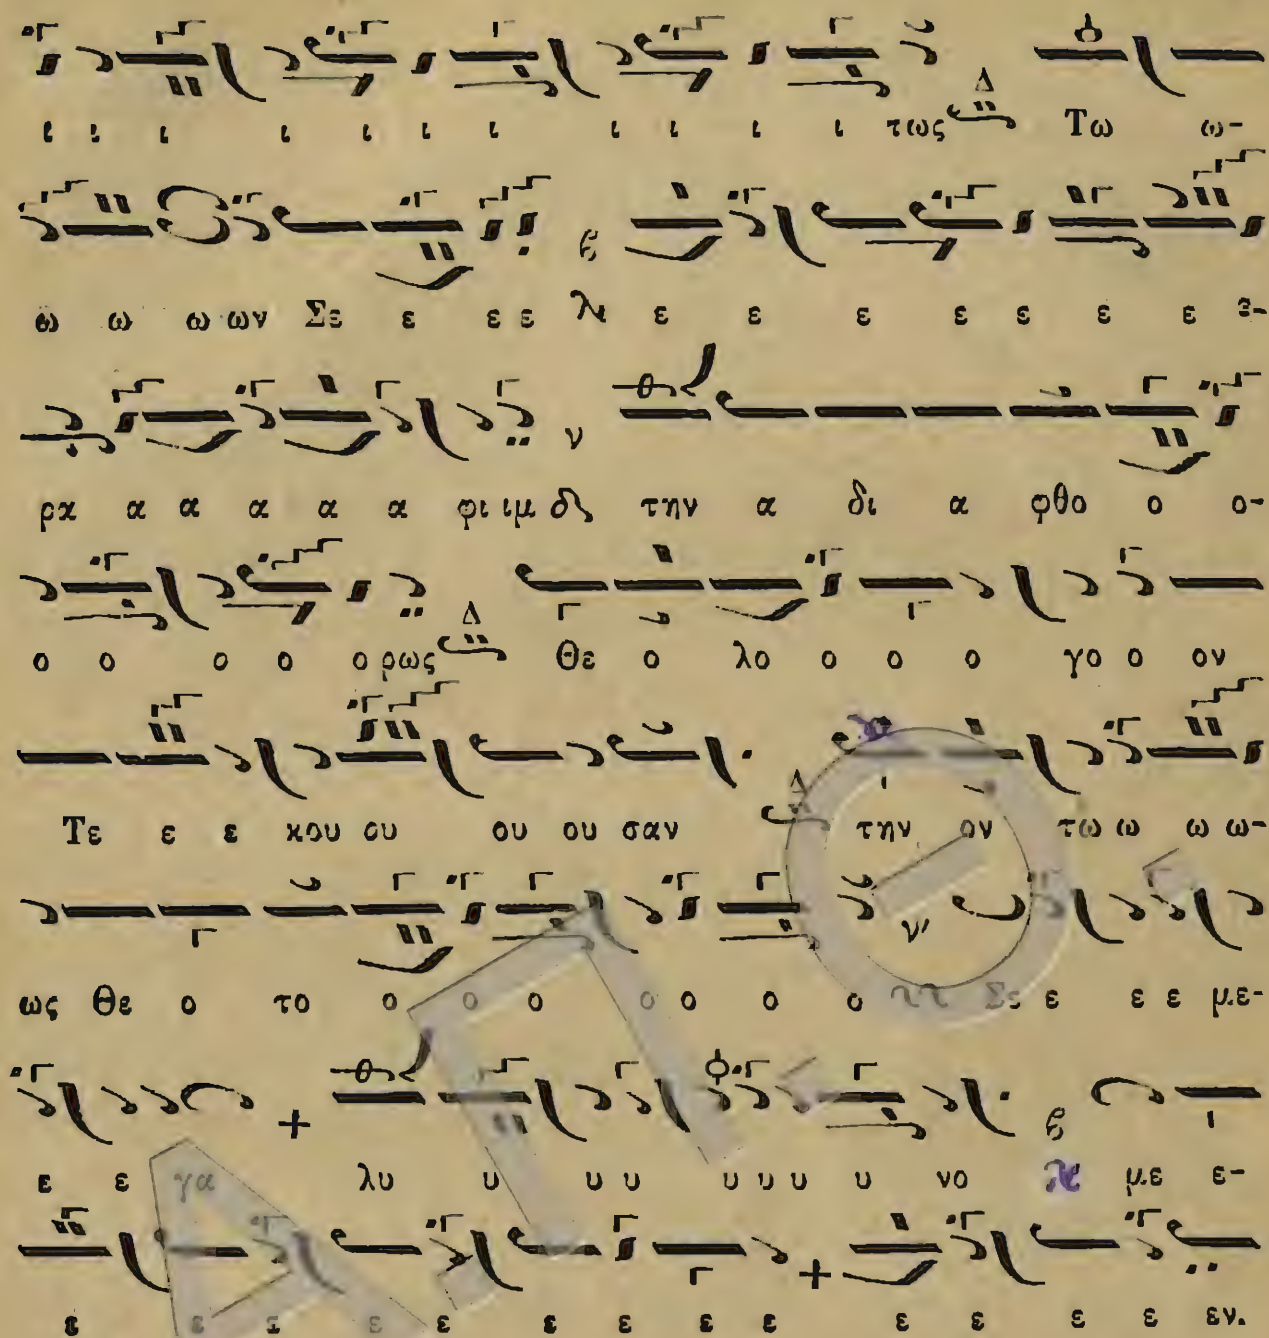 ι ι ι ι ι ι ι ι ι ι ι τως Δ Τω ω-
ω ω ω ων Σε ε ε ε ε ε ε ε ε ε ε ε-
ρα α α α α α φι ιμ την α δι α φθο ο ο-
ο ο ο ο ο ρως Δ Θε ο λο ο ο ο γο ο ον
Τε ε ε κου ου ου ου σαν Δ την ον τω ω ω ω-
ως Θε ο το ο ο ο ο ο ο ο Σε ε ε ε με-
ε ε γα λυ υ υ υ υ υ υ υ νο με ε-
ε ε ε ε ε ε ε ε ε ε ε ε ε εν.